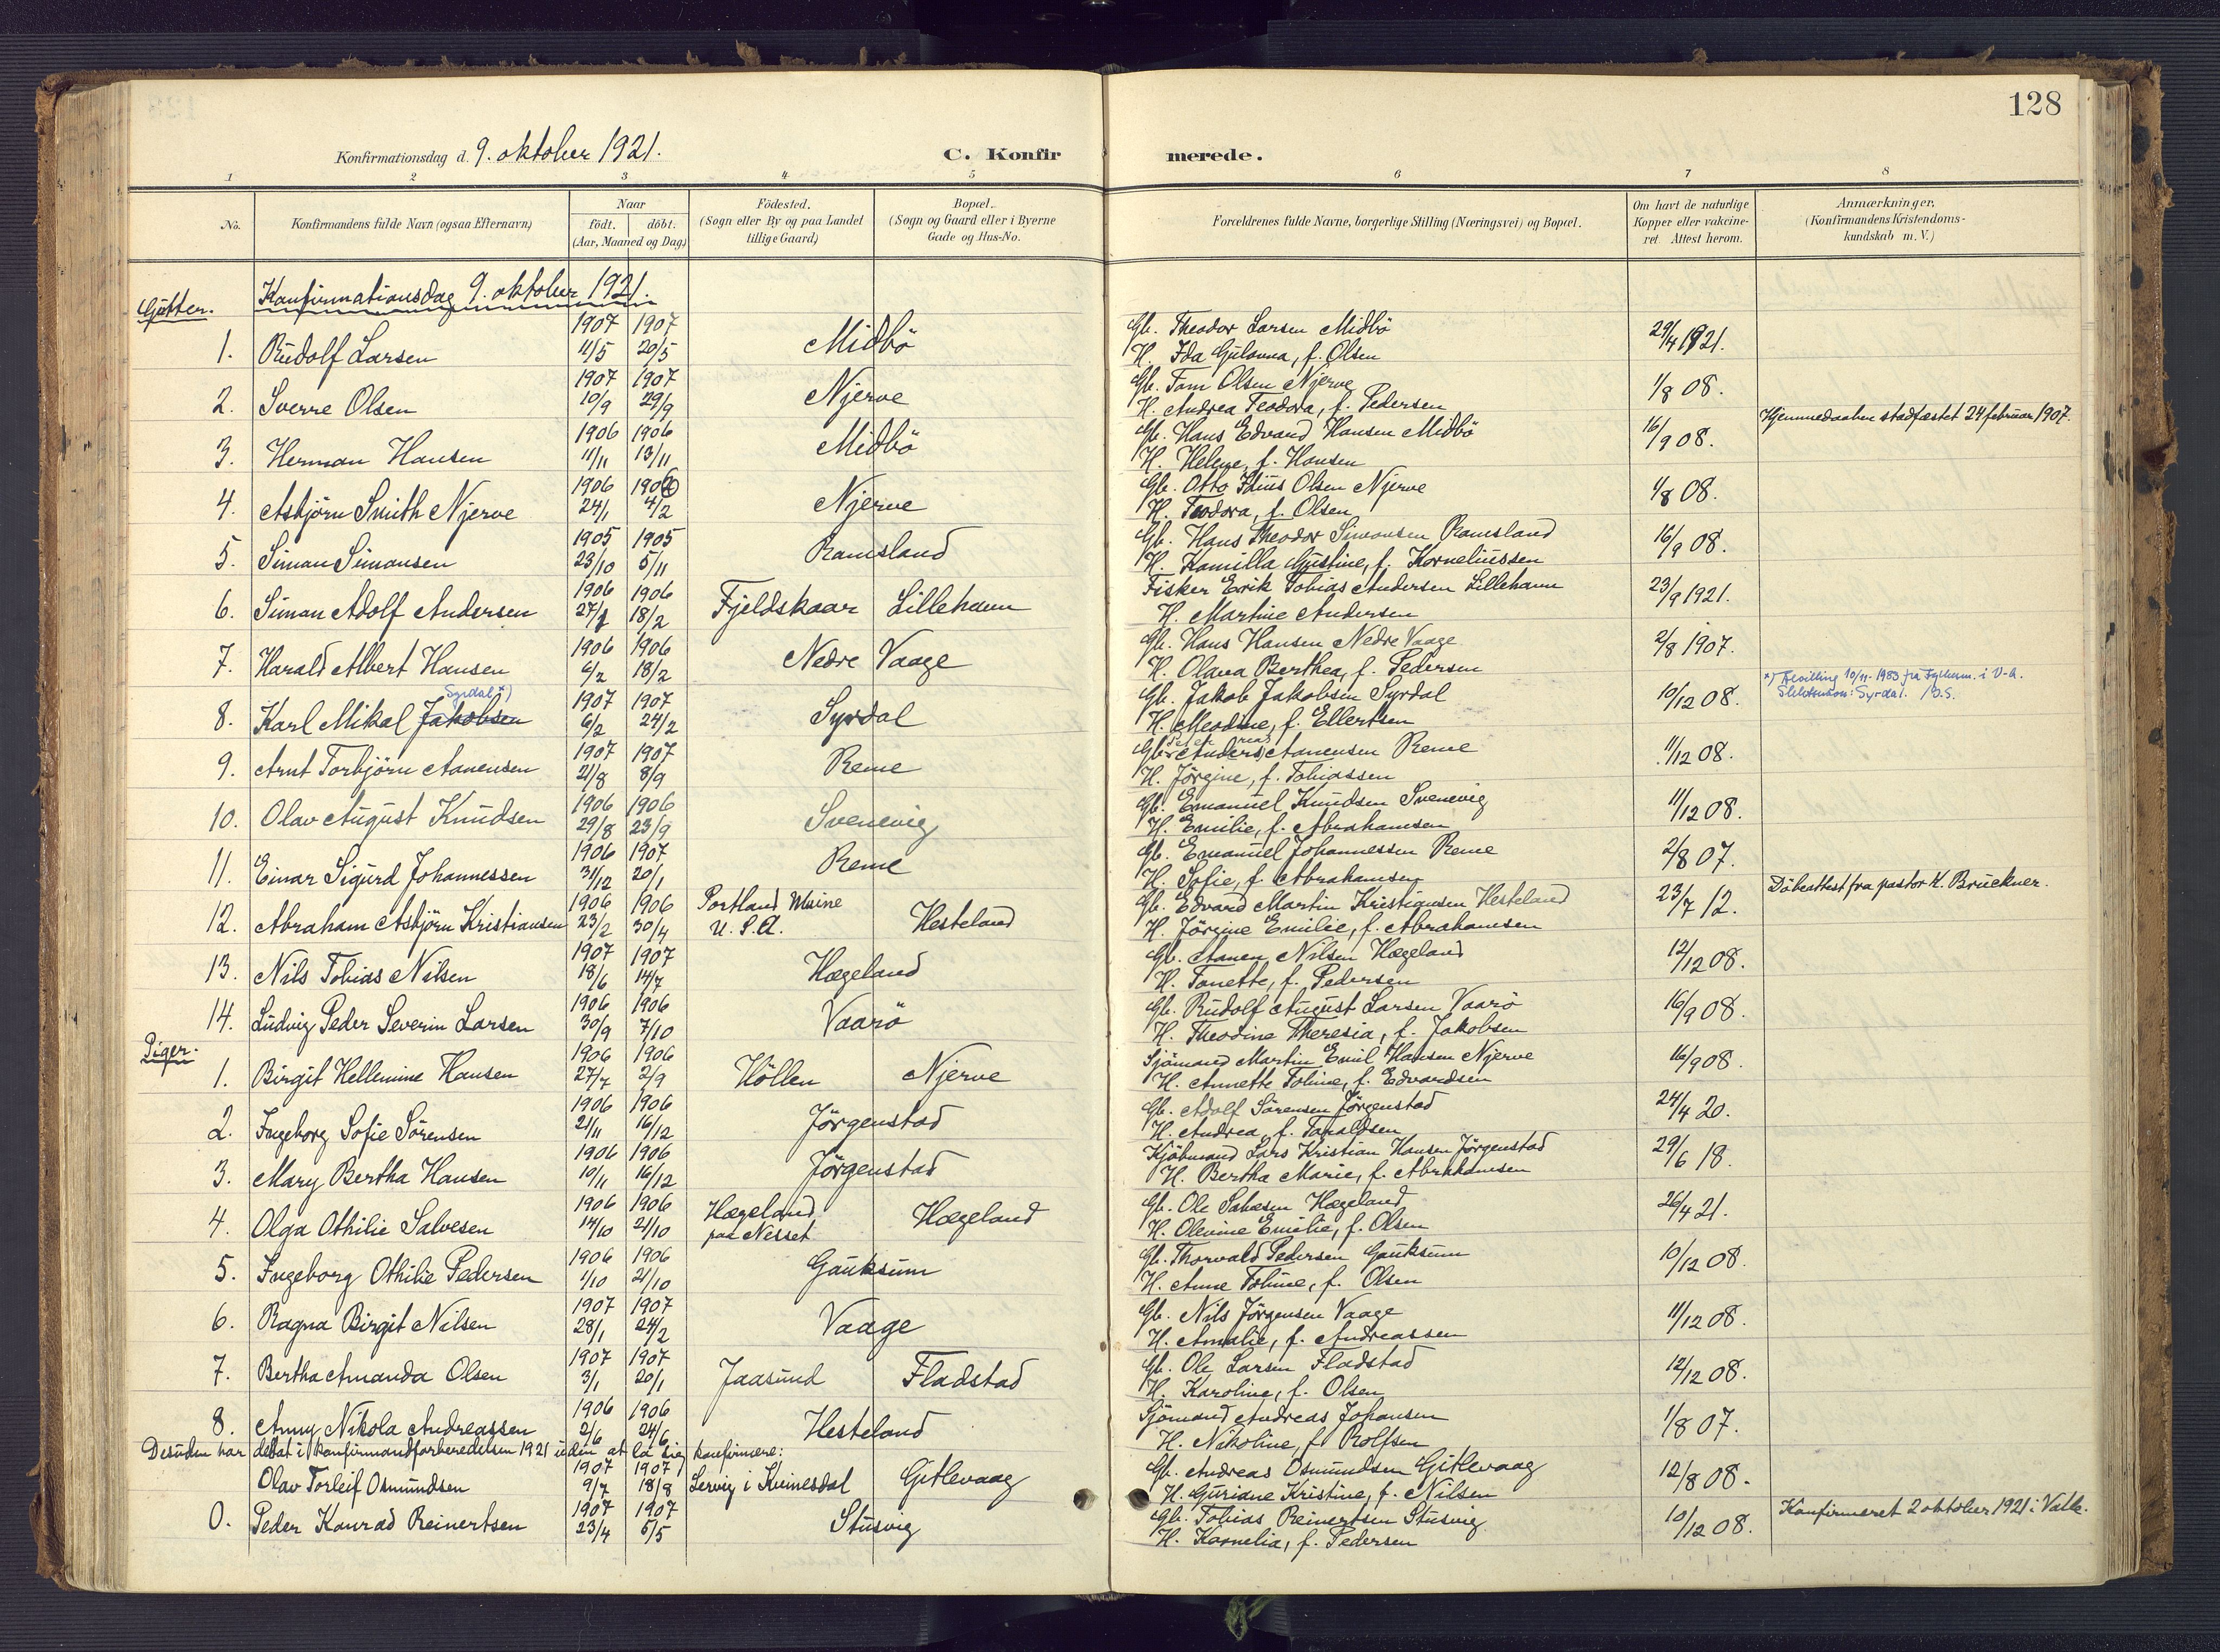 128
Konfirmationsdag d. 9. oktober 1921. C. Konfirmerede.
1 2 3 4 5 6 7 8
No. Konfirmandens fulde Navn (ogsaa Efternavn) Naar födt. döbt. (Aar, Maaned og Dag) Födested. (Sogn eller By og paa Landet tillige Gaard) Bopæl. (Sogn og Gaard eller i Byerne Gade og Hus-No. Forældrenes fulde Navne, borgerlige Stilling (Næringsvei) og Bopæl. Om havt de naturlige Kopper eller vakcineret Attest herom. Anmærkninger, (Konfirmandens Kristendomskundskab m. V.)
Gutter. Konfirmationsdag 9. oktober 1921.
1. Rudolf Larsen 1907 11/5 1907 20/5 Midbö Gb. Theodor Larsen Midbö H. Ida Gulovna, f. Olsen 29/4 1921.
2. Sverre Olsen 1907 10/9 1907 29/9 Njerve Gb. Tom Olsen Njerve H. Andrea Teodora, f. Pedersen 1/8 08.
3. Herman Hansen 1906 11/11 1906 13/11 Midbö Gb. Hans Edvard Hansen Midbö H. Helene, f. Hansen 16/9 08. Hjemmedaaben stadfæstet 24 februar 1907.
4. Asbjörn Smith Njerve 1906 24/1 1906 4/2 Njerve Gb. Otto Olsen Njerve H. Teodora, f. Olsen 1/8 08.
5. Simon Simonsen 1905 23/10 1905 5/11 Ramsland Gb. Hans Theodor Simonsen Ramsland H. Kamilla Gustine, f. Korneliussen 16/9 08.
6. Simon Adolf Andersen 1906 27/1 1906 18/2 Fjeldskaar Lillehavn Fisker Erik Tobias Andersen Lillehavn H. Martine Andersen 23/9 1921.
7. Harald Albert Hansen 1906 6/2 1906 18/2 Nedre Vaage Gb. Hans Hansen Nedre Vaage H. Olava Berthea, f. Pedersen 2/8 1907.
8. Karl Mikal Jakobsen Syrdal *) 1907 6/2 1907 24/2 Syrdal Gb. Jakob Jakobsen Syrdal H. Meodine, f. Ellertsen 10/12 08. *) Bevilling 10/11-1983 fra Fylkesm. i V-A. Slektsnavn: Syrdal. /
9. Arnt Torbjörn Aanensen 1907 21/8 1907 8/9 Reme Gb. Anders Aanensen Reme H. Jörgine, f. Tobiassen 11/12 08.
10. Olav August Knudsen 1906 29/8 1906 23/9 Svenevig Gb. Emanuel Knudsen Svenevig H. Emilie, f. Abrahamsen 11/12 08.
11. Einar Sigurd Johannessen 1906 31/12 1907 20/1 Reme Gb. Emanuel Johannessen Reme H. Sofie, f. Abrahamsen 2/8 07.
12. Abraham Asbjörn Kristiansen 1906 23/2 1906 30/4 Portland Maine U. S. A. Hesteland Gb. Edvard Martin Kristiansen Hesteland H. Jörgine Emilie, f. Abrahamsen 23/7 12. Döbeattest fra pastor K. Bruckner.
13. Nils Tobias Nilsen 1907 18/6 1907 14/7 Hægeland Gb. Aanen Nilsen Hægeland H. Tonette, f. Pedersen 12/12 08.
14. Ludvig Peder Severin Larsen 1906 30/9 1906 7/10 Vaarö Gb. Rudolf August Larsen Vaarö H. Theodine Theresia, f. Jakobsen 16/9 08.
Piger.
1. Birgit Hellemine Hansen 1906 27/7 1906 2/9 Höllen Njerve Sjömand Martin Emil Hansen Njerve H. Annette Toline, f. Edvardsen 16/9 08.
2. Ingeborg Sofie Sörensen 1906 21/11 1906 16/12 Jörgenstad Gb. Adolf Sörensen Jörgenstad H. Andrea, f. Tanaldsen 24/4 20.
3. Mary Bertha Hansen 1906 10/11 1906 16/12 Jörgenstad Kjöbmand Lars Kristian Hansen Jörgenstad H. Bertha Marie, f. Abrahamsen 29/6 18.
4. Olga Othilie Salvesen 1906 14/10 1906 21/10 Hægeland paa Nesset Hægeland Gb. Ole Salvesen Hægeland H. Olevine Emilie, f. Olsen 26/4 21.
5. Ingeborg Othilie Pedersen 1906 1/10 1906 21/10 Gauksum Gb. Thorvald Pedersen Gauksum H. Anne Toline, f. Olsen 10/12 08.
6. Ragna Birgit Nilsen 1907 28/1 1907 24/2 Vaage Gb. Nils Jörgensen Vaage H. Amalie, f. Andreassen 11/12 08.
7. Bertha Amanda Olsen 1907 3/1 1907 20/1 Jaasund Fladstad Gb. Ole Larsen Fladstad H. Karoline, f. Olsen 12/12 08.
8. Anny Nikola Andreassen 1906 2/6 1906 24/6 Hesteland Sjömand Andreas Johansen H. Nikoline, f. Rolfsen 1/8 07.
Desuden har deltat i konfirmandforberedelsen 1921 uden at la sig konfirmere:
Olav Torleif Osmundsen 1907 9/7 1907 18/8 Lervig i Kvinesdal Gitlevaag Gb. Andreas Osmundsen Gitlevaag H. Guriane Kristine, f. Nilsen 12/8 08.
0. Peder Konrad Reinertsen 1907 23/4 1907 5/5 Stusvig Gb. Tobias Reinertsen Stusvig H. Kornelia, f. Pedersen 10/12 08. Konfirmeret 2 oktober 1921 i Valle.